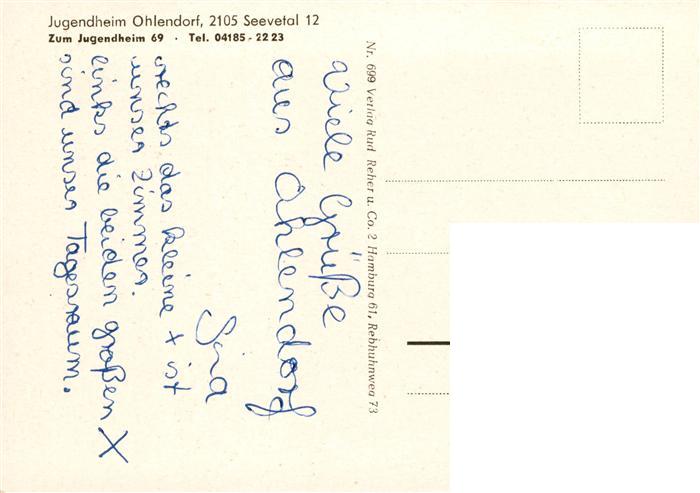 Jugendheim Ohlendorf, 2105 Seevetal 12
Zum Jugendheim 69 · Tel. 04185 - 22 23
Viele Grüße
aus Ohlendorf
rechts das kleine x ist
unser Zimmer.
links die beiden großen X
sind unser Tagesraum.
Nr. 699 Verlag Rud. Reher u. Co. 2 Hamburg 61, Rebhuhnweg 73